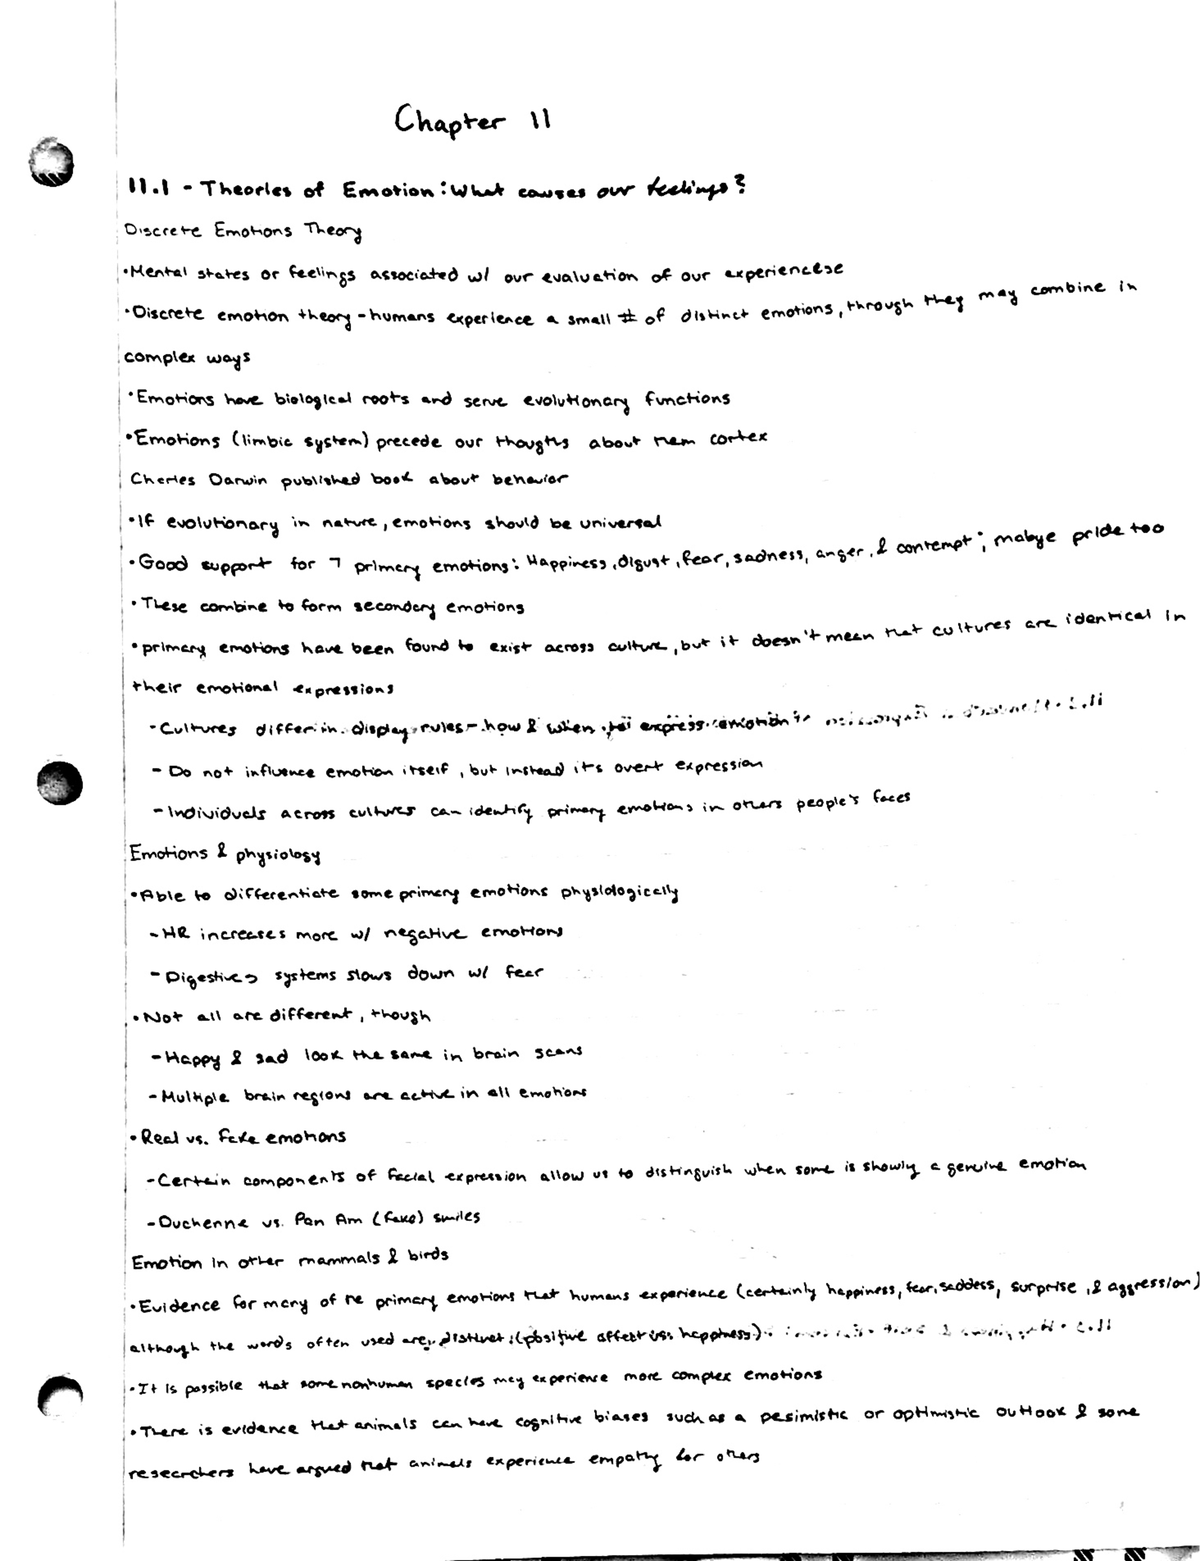 Chapter 11
11.1 - Theories of Emotion: What causes our feelings?
Discrete Emotions Theory
•Mental states or feelings associated w/ our evaluation of our experiencese
•Discrete emotion theory - humans experience a small # of distinct emotions, through they may combine in
complex ways
•Emotions have biological roots and serve evolutionary functions
•Emotions (limbic system) precede our thougths about them cortex
Charles Darwin published book about behavior
•If evolutionary in nature, emotions should be universal
•Good support for 7 primary emotions: Happiness, disgust, fear, sadness, anger, & contempt; mabye pride too
•These combine to form secondary emotions
•primary emotions have been found to exist across culture, but it doesn't mean that cultures are identical in
their emotional expressions
-Cultures differ in display rules - how & when to express emotion
- Do not influence emotion itself, but instead it's overt expression
-Individuals across cultures can identify primary emotions in others people's faces
Emotions & physiology
•Able to differentiate some primary emotions physiologically
-HR increases more w/ negative emotions
-Digestive systems slows down w/ fear
•Not all are different, though
-Happy & sad look the same in brain scans
-Multiple brain regions are active in all emotions
•Real vs. fake emotions
-Certain components of facial expression allow us to distinguish when some is showiy a genuine emotion
-Duchenne vs. Pan Am (fake) smiles
Emotion in other mammals & birds
•Evidence for many of he primary emotions that humans experience (certainly happiness, fear, saddess, surprise, & aggression)
although the words often used are distinct (positive affect vs. happiness)
•It is possible that some nonhuman species may experience more complex emotions
•There is evidence that animals can have cognitive biases such as a pesimistic or optimistic outlook & some
researchers have argued that animals experience empathy for others